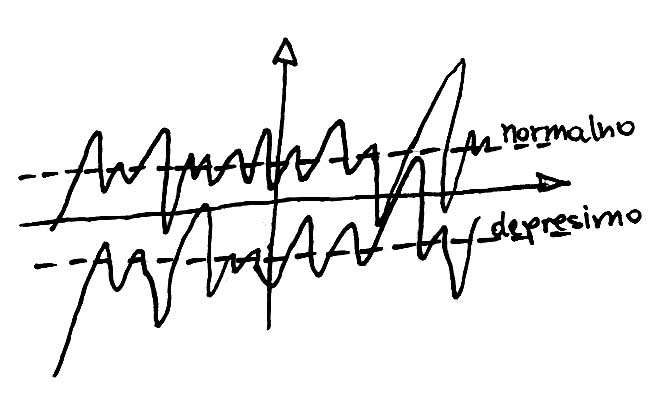 normalno
depresivno